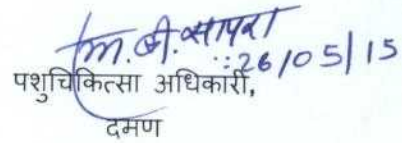 म. बी. सापरा
:26/05/15
पशुचिकित्सा अधिकारी,
दमण